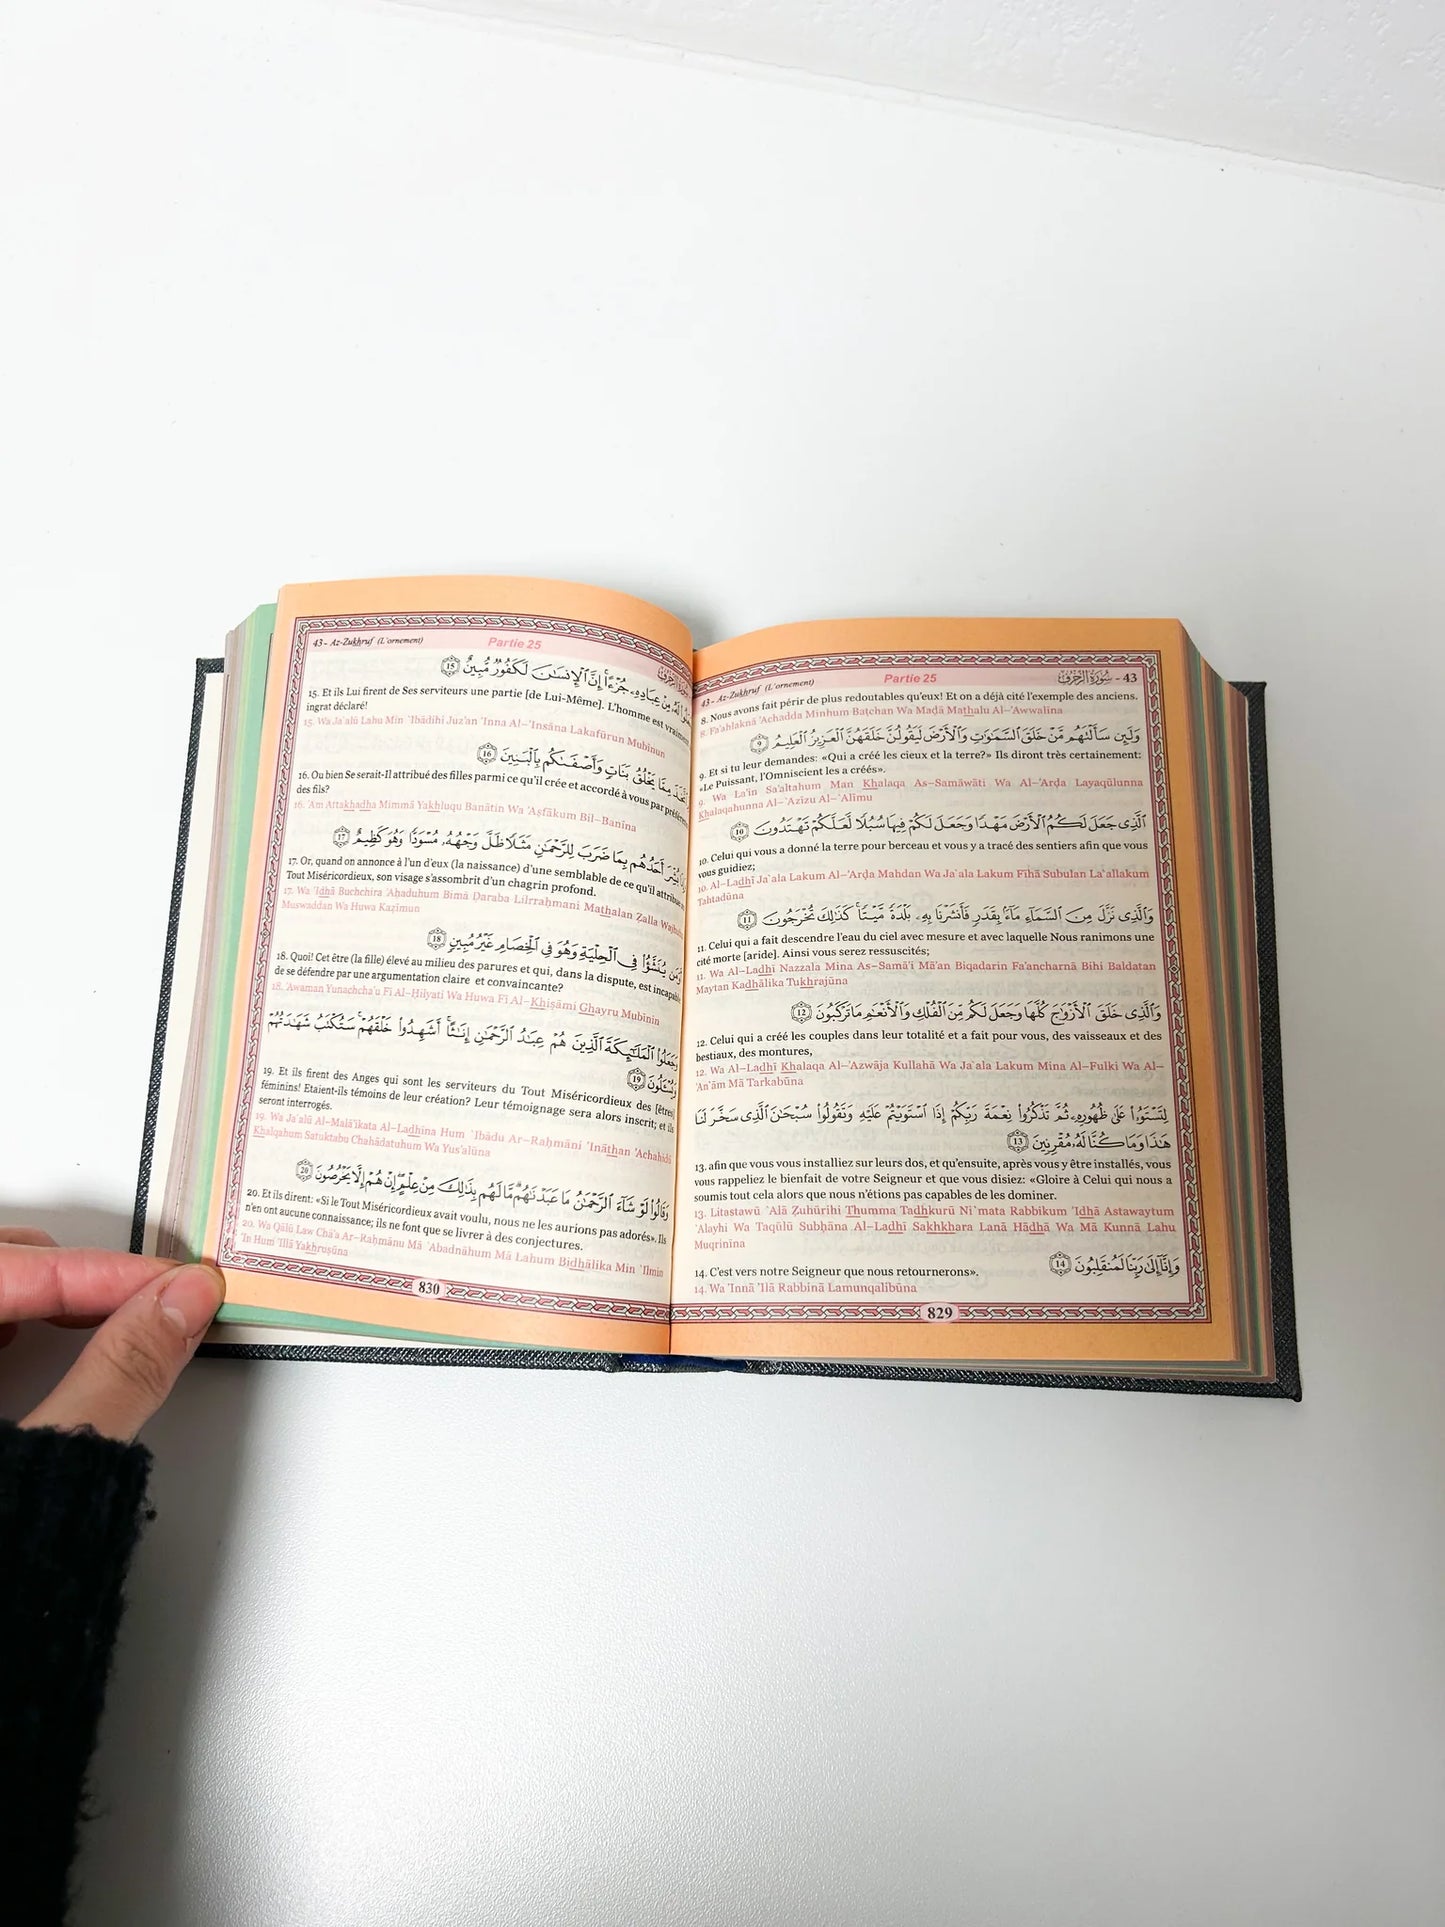 43 - Az-Zukhruf (L'ornement) Partie 25 سورة الزخرف - 43
8. Nous avons fait périr de plus redoutables qu'eux! Et on a déjà cité l'exemple des anciens.
8. Fa'ahlaknā 'Achadda Minhum Baţchan Wa Mađá Mathalu Al-'Awwalīna
وَلَئِن سَأَلْتَهُم مَّنْ خَلَقَ السَّمَاوَاتِ وَالْأَرْضَ لَيَقُولُنَّ خَلَقَهُنَّ الْعَزِيزُ الْعَلِيمُ ۹
9. Et si tu leur demandes: «Qui a créé les cieux et la terre?» Ils diront très certainement:
«Le Puissant, l'Omniscient les a créés».
9. Wa La'in Sa'altahum Man Khalaqa As-Samāwāti Wa Al-'Arđa Layaqūlunna
Khalaqahunna Al-`Azīzu Al-`Alīmu
الَّذِي جَعَلَ لَكُمُ الْأَرْضَ مَهْدًا وَجَعَلَ لَكُمْ فِيهَا سُبُلًا لَّعَلَّكُمْ تَهْتَدُونَ ۱۰
10. Celui qui vous a donné la terre pour berceau et vous y a tracé des sentiers afin que vous
vous guidiez;
10. Al-Ladhī Ja`ala Lakum Al-'Arđa Mahdan Wa Ja`ala Lakum Fīhā Subulan La`allakum
Tahtadūna
وَالَّذِي نَزَّلَ مِنَ السَّمَاءِ مَاءً بِقَدَرٍ فَأَنشَرْنَا بِهِ بَلْدَةً مَّيْتًا كَذَٰلِكَ تُخْرَجُونَ ۱۱
11. Celui qui a fait descendre l'eau du ciel avec mesure et avec laquelle Nous ranimons une
cité morte [aride]. Ainsi vous serez ressuscités;
11. Wa Al-Ladhī Nazzala Mina As-Samā'i Mā'an Biqadarin Fa'ancharnā Bihi Baldatan
Maytan Kadhālika Tukhrajūna
وَالَّذِي خَلَقَ الْأَزْوَاجَ كُلَّهَا وَجَعَلَ لَكُم مِّنَ الْفُلْكِ وَالْأَنْعَامِ مَا تَرْكَبُونَ ۱۲
12. Celui qui a créé les couples dans leur totalité et a fait pour vous, des vaisseaux et des
bestiaux, des montures,
12. Wa Al-Ladhī Khalaqa Al-'Azwāja Kullahā Wa Ja`ala Lakum Mina Al-Fulki Wa Al-
'An`ām Mā Tarkabūna
لِتَسْتَوُوا عَلَىٰ ظُهُورِهِ ثُمَّ تَذْكُرُوا نِعْمَةَ رَبِّكُمْ إِذَا اسْتَوَيْتُمْ عَلَيْهِ وَتَقُولُوا سُبْحَانَ الَّذِي سَخَّرَ لَنَا
هَٰذَا وَمَا كُنَّا لَهُ مُقْرِنِينَ ۱۳
13. afin que vous vous installiez sur leurs dos, et qu'ensuite, après vous y être installés, vous
vous rappeliez le bienfait de votre Seigneur et que vous disiez: «Gloire à Celui qui nous a
soumis tout cela alors que nous n'étions pas capables de les dominer.
13. Litastawū `Alá Žuhūrihi Thumma Tadhkurū Ni`mata Rabbikum 'Idhā Astawaytum
`Alayhi Wa Taqūlū Subĥāna Al-Ladhī Sakhkhara Lanā Hādhā Wa Mā Kunnā Lahu
Muqrinīna
وَإِنَّا إِلَىٰ رَبِّنَا لَمُنقَلِبُونَ ۱٤
14. C'est vers notre Seigneur que nous retournerons».
14. Wa 'Innā 'Ilá Rabbinā Lamunqalibūna
829
43 - Az-Zukhruf (L'ornement) Partie 25
وَجَعَلُوا لَهُ مِنْ عِبَادِهِ جُزْءًا إِنَّ الْإِنسَانَ لَكَفُورٌ مُّبِينٌ ۱٥
15. Et ils Lui firent de Ses serviteurs une partie [de Lui-Même]. L'homme est vraiment
ingrat déclaré!
15. Wa Ja`alū Lahu Min `Ibādihi Juz'an 'Inna Al-'Insāna Lakafūrun Mubīnun
اتَّخَذَ مِمَّا يَخْلُقُ بَنَاتٍ وَأَصْفَاكُم بِالْبَنِينَ ۱٦
16. Ou bien Se serait-Il attribué des filles parmi ce qu'il crée et accordé à vous par préférence
des fils?
16. 'Am Attakhadha Mimmā Yakhluqu Banātin Wa 'Aşfākum Bil-Banīna
وَإِذَا بُشِّرَ أَحَدُهُم بِمَا ضَرَبَ لِلرَّحْمَٰنِ مَثَلًا ظَلَّ وَجْهُهُ مُسْوَدًّا وَهُوَ كَظِيمٌ ۱۷
17. Or, quand on annonce à l'un d'eux (la naissance) d'une semblable de ce qu'il attribue au
Tout Miséricordieux, son visage s'assombrit d'un chagrin profond.
17. Wa 'Idhā Buchchira 'Aĥaduhum Bimā Đaraba Lilrraĥmani Mathalan Žalla Wajhuhu
Muswaddan Wa Huwa Kažīmun
أَوَمَن يُنَشَّأُ فِي الْحِلْيَةِ وَهُوَ فِي الْخِصَامِ غَيْرُ مُبِينٍ ۱۸
18. Quoi! Cet être (la fille) élevé au milieu des parures et qui, dans la dispute, est incapable
de se défendre par une argumentation claire et convaincante?
18. 'Awaman Yunachcha'u Fī Al-Ĥilyati Wa Huwa Fī Al-Khişāmi Ghayru Mubīnin
وَجَعَلُوا الْمَلَائِكَةَ الَّذِينَ هُمْ عِبَادُ الرَّحْمَٰنِ إِنَاثًا أَشَهِدُوا خَلْقَهُمْ سَتُكْتَبُ شَهَادَتُهُمْ
وَيُسْأَلُونَ ۱۹
19. Et ils firent des Anges qui sont les serviteurs du Tout Miséricordieux des [êtres]
féminins! Etaient-ils témoins de leur création? Leur témoignage sera alors inscrit; et ils
seront interrogés.
19. Wa Ja`alū Al-Malā'ikata Al-Ladhīna Hum `Ibādu Ar-Raĥmāni 'Ināthan 'Achahidū
Khalqahum Satuktabu Chahādatuhum Wa Yus'alūna
وَقَالُوا لَوْ شَاءَ الرَّحْمَٰنُ مَا عَبَدْنَاهُم مَّا لَهُم بِذَٰلِكَ مِنْ عِلْمٍ إِنْ هُمْ إِلَّا يَخْرُصُونَ ۲۰
20. Et ils dirent: «Si le Tout Miséricordieux avait voulu, nous ne les aurions pas adorés». Ils
n'en ont aucune connaissance; ils ne font que se livrer à des conjectures.
20. Wa Qālū Law Chā'a Ar-Raĥmānu Mā `Abadnāhum Mā Lahum Bidhālika Min `Ilmin
'In Hum 'Illā Yakhruşūna
830